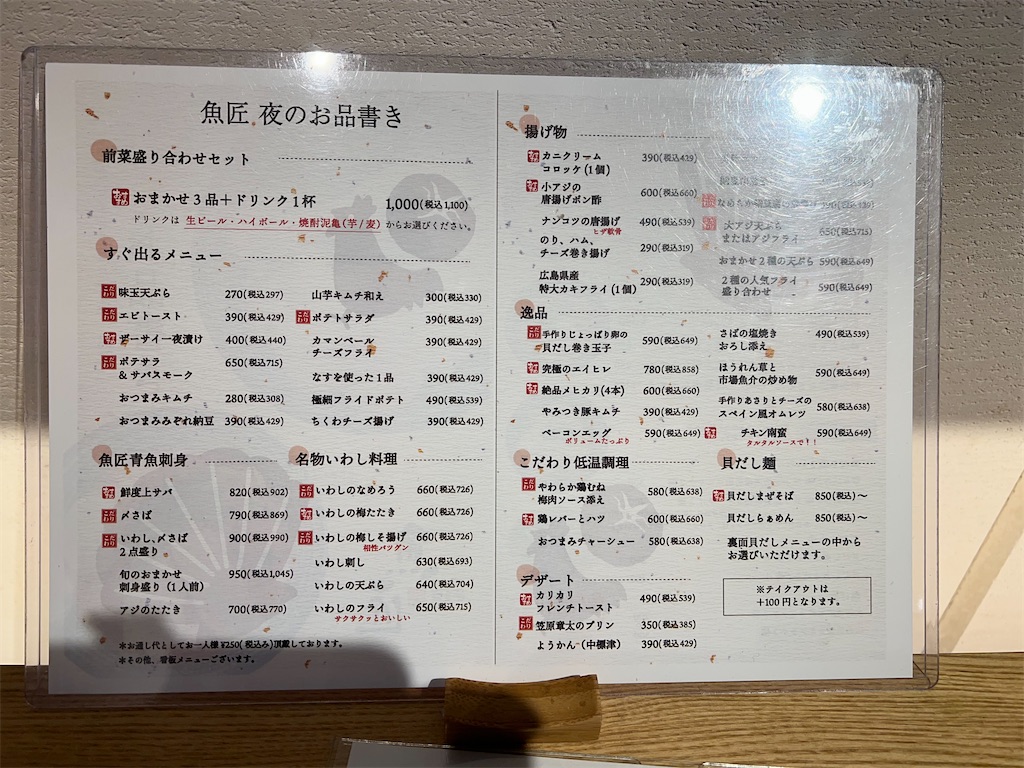 魚匠 夜のお品書き
前菜盛り合わせセット
おまかせ3品+ドリンク1杯 1,000(税込1,100)
ドリンクは 生ビール・ハイボール・焼酎泥亀(芋/麦)からお選びください。
すぐ出るメニュー
こだわり 味玉天ぷら 270(税込297)
こだわり エビトースト 390(税込429)
ザーサイ一夜漬け 400(税込440)
こだわり ポテサラ
&サバスモーク 650(税込715)
おつまみキムチ 280(税込308)
おつまみみぞれ納豆 390(税込429)
山芋キムチ和え 300(税込330)
こだわり ポテトサラダ 390(税込429)
カマンベール
チーズフライ 390(税込429)
なすを使った1品 390(税込429)
極細フライドポテト 490(税込539)
ちくわチーズ揚げ 390(税込429)
魚匠青魚刺身
鮮度上サバ 820(税込902)
こだわり 〆さば 790(税込869)
こだわり いわし、〆さば
2点盛り 900(税込990)
旬のおまかせ
刺身盛り(1人前) 950(税込1,045)
アジのたたき 700(税込770)
名物いわし料理
こだわり いわしのなめろう 660(税込726)
いわしの梅たたき 660(税込726)
こだわり いわしの梅しそ揚げ 660(税込726)
相性バツグン
いわし刺し 630(税込693)
いわしの天ぷら 640(税込704)
いわしのフライ 650(税込715)
サクサクッとおいしい
※お通し代としてお一人様¥250(税込み)頂戴しております。
※その他、看板メニューございます。
揚げ物
カニクリーム
コロッケ(1個) 390(税込429)
小アジの
唐揚げポン酢 600(税込660)
ナンコツの唐揚げ 490(税込539)
ヒザ軟骨
のり、ハム、
チーズ巻き揚げ 290(税込319)
広島県産
特大カキフライ(1個) 290(税込319)
大アジ天ぷら
またはアジフライ 650(税込715)
おまかせ2種の天ぷら 590(税込649)
2種の人気フライ
盛り合わせ 590(税込649)
逸品
こだわり 手作りじょっぱり卵の
貝だし巻き玉子 590(税込649)
究極のエイヒレ 780(税込858)
絶品メヒカリ(4本) 600(税込660)
やみつき豚キムチ 390(税込429)
ベーコンエッグ 590(税込649)
ボリュームたっぷり
さばの塩焼き
おろし添え 490(税込539)
ほうれん草と
市場魚介の炒め物 590(税込649)
手作りあさりとチーズの
スペイン風オムレツ 580(税込638)
チキン南蛮 590(税込649)
タルタルソースで!!
こだわり低温調理
こだわり やわらか鶏むね
梅肉ソース添え 580(税込638)
鶏レバーとハツ 600(税込660)
おつまみチャーシュー 580(税込638)
貝だし麺
貝だしまぜそば 850(税込)〜
貝だしらぁめん 850(税込)〜
裏面貝だしメニューの中から
お選びいただけます。
デザート
カリカリ
フレンチトースト 490(税込539)
こだわり 笠原章太のプリン 350(税込385)
ようかん(中標津) 390(税込429)
※テイクアウトは
+100円となります。